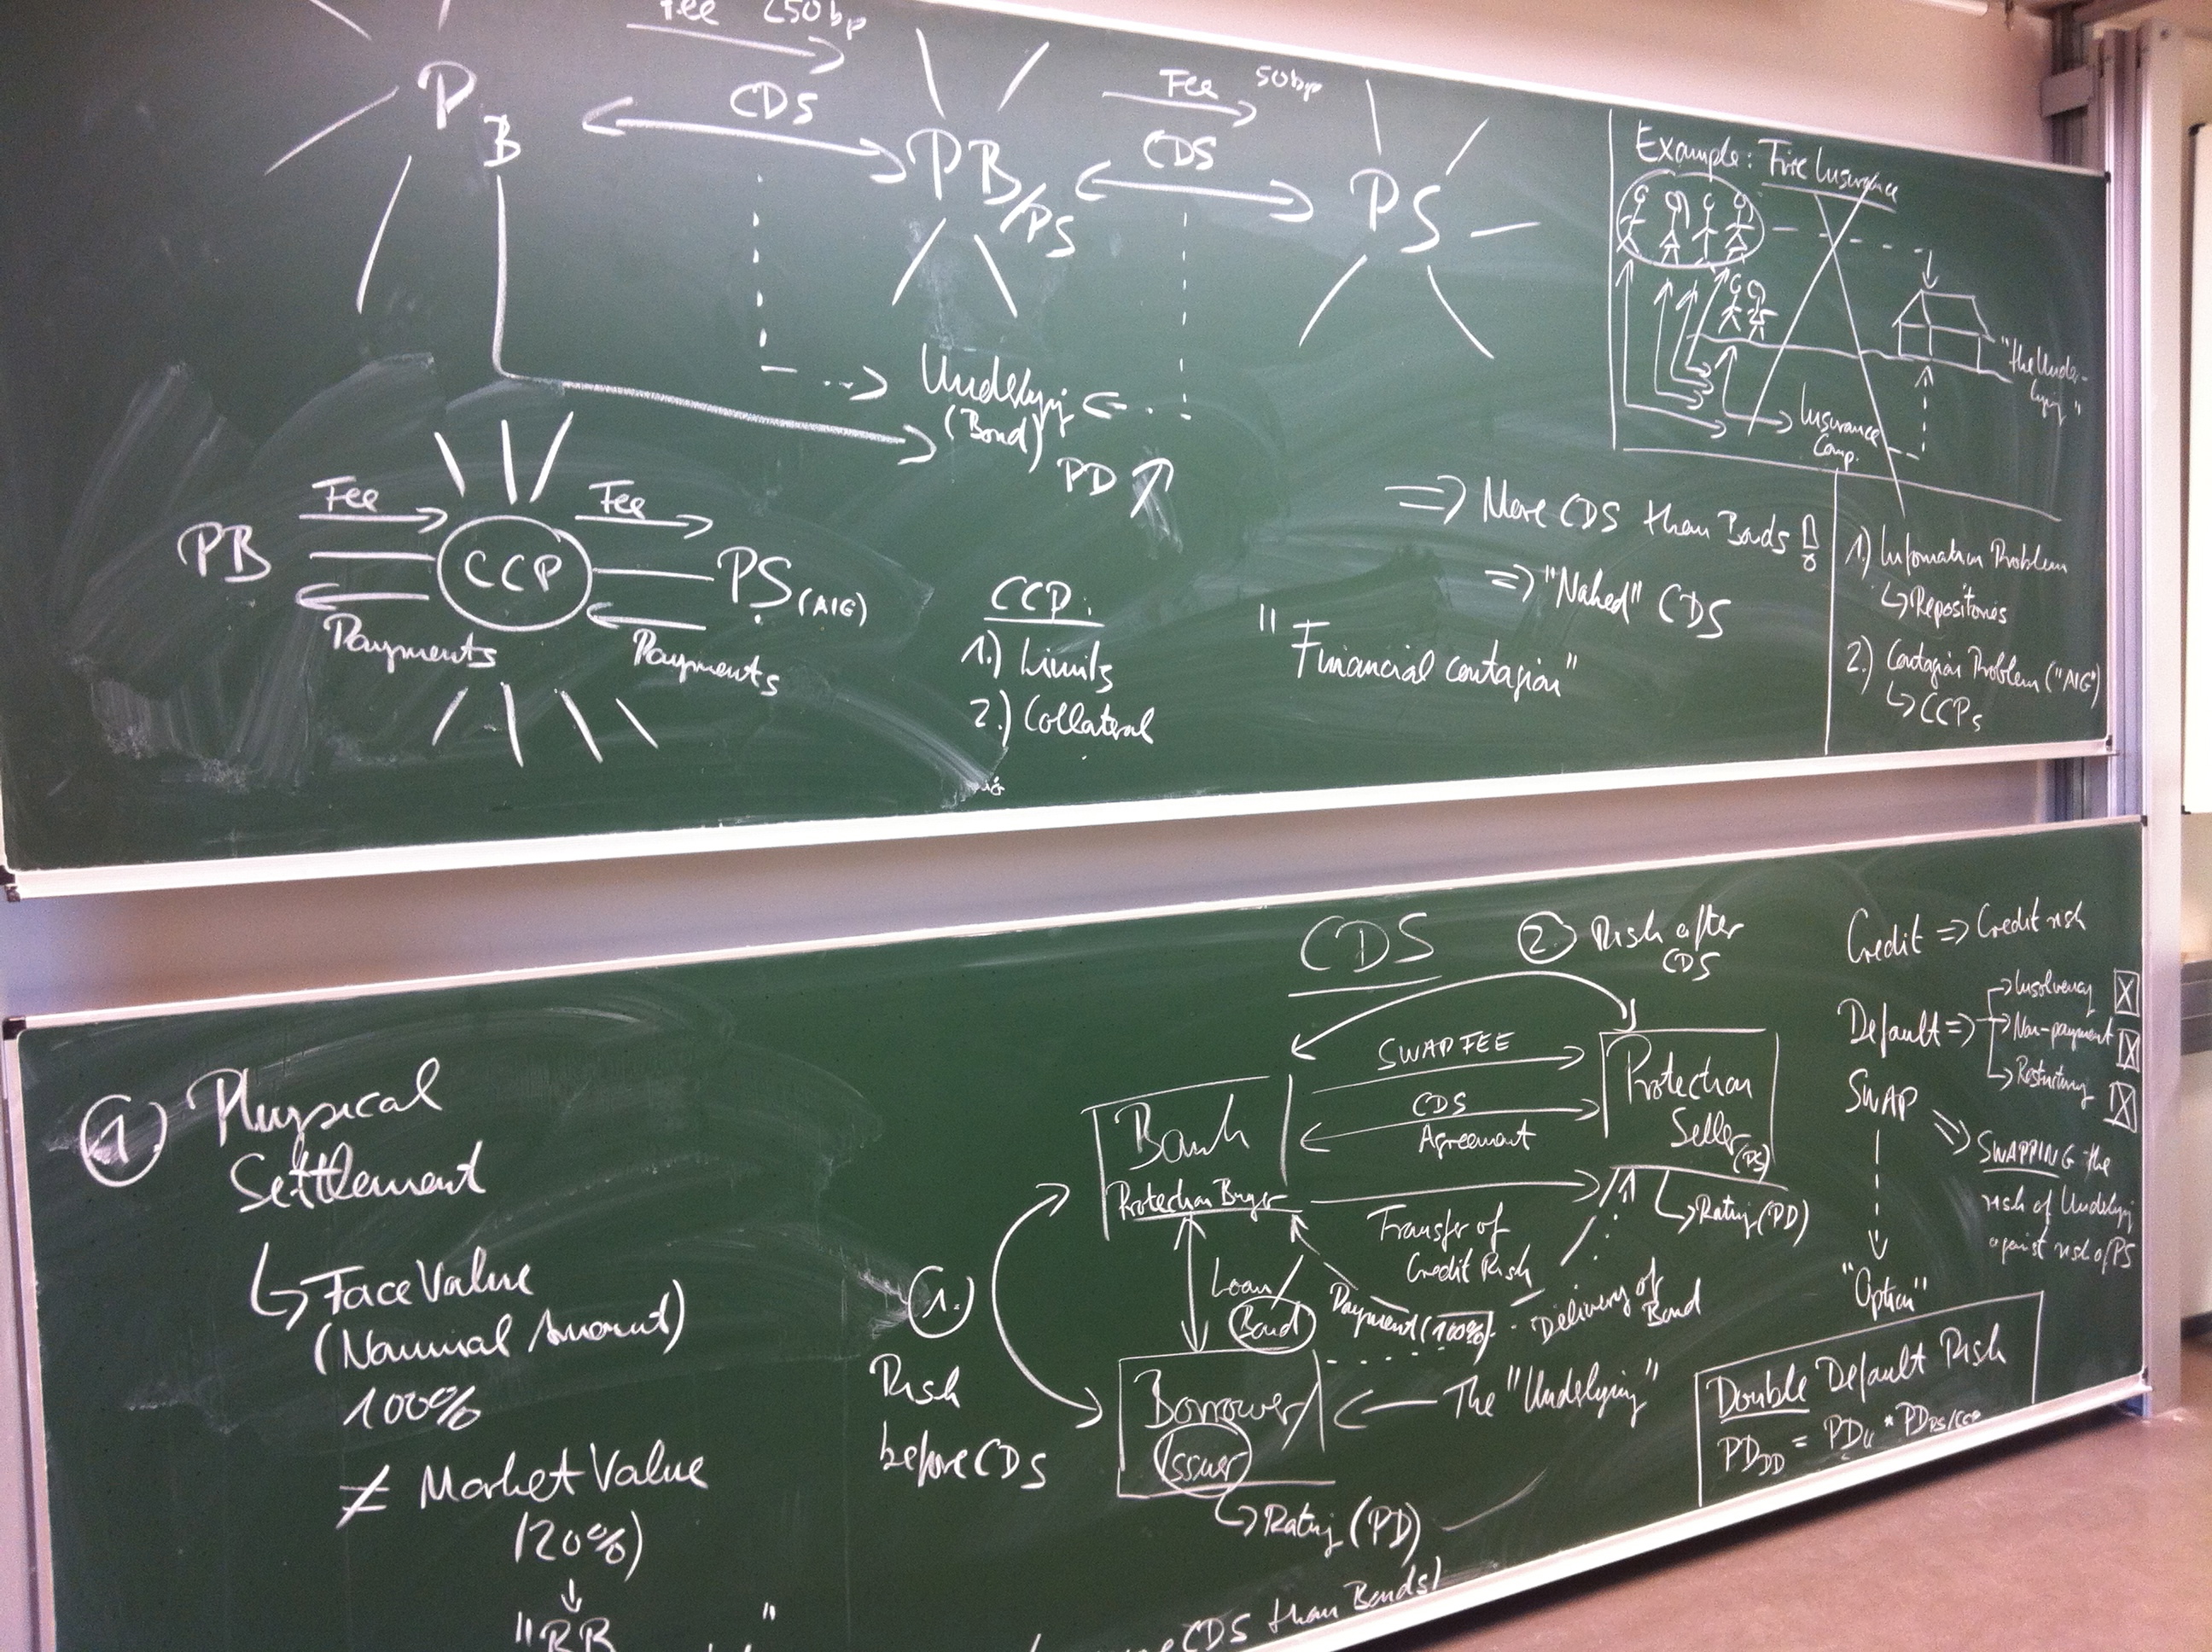 Fee 250bp
PB
CDS
PB/PS
Fee 50bp
CDS
PS
Underlying
(Bond)
PD ↑
Example: Fire Insurance
"the Under-
lying"
Insurance
Comp.
PB
Fee
CCP
Fee
PS (AIG)
Payments
Payments
CCP:
1.) Limits
2.) Collateral
=> More CDS than Bonds !
=> "Naked" CDS
"Financial contagion"
1.) Information Problem
↳ Repositories
2.) Contagion Problem ("AIG")
↳ CCPs
① Physical
Settlement
↳ Face Value
(Nominal Amount)
100%
≠ Market Value
(20%)
↓
CDS
② Risk after
CDS
SWAP FEE
CDS
Agreement
Bank
Protection Buyer
Protection
Seller (PS)
↳ Rating (PD)
Transfer of
Credit Risk
Loan/
Bond
Payment (100%)
Delivery of
Bond
1.)
Risk
before CDS
Borrower/
Issuer
← The "Underlying"
↳ Rating (PD)
CDS than Bonds!
Credit => Credit risk
Default =>
→ Insolvency ☒
→ Non-payment ☒
→ Restructuring ☒
SWAP
=> SWAPPING the
risk of Underlying
against risk of PS
"Option"
Double Default Risk
PD_DD = PD_U * PD_PS/CCP